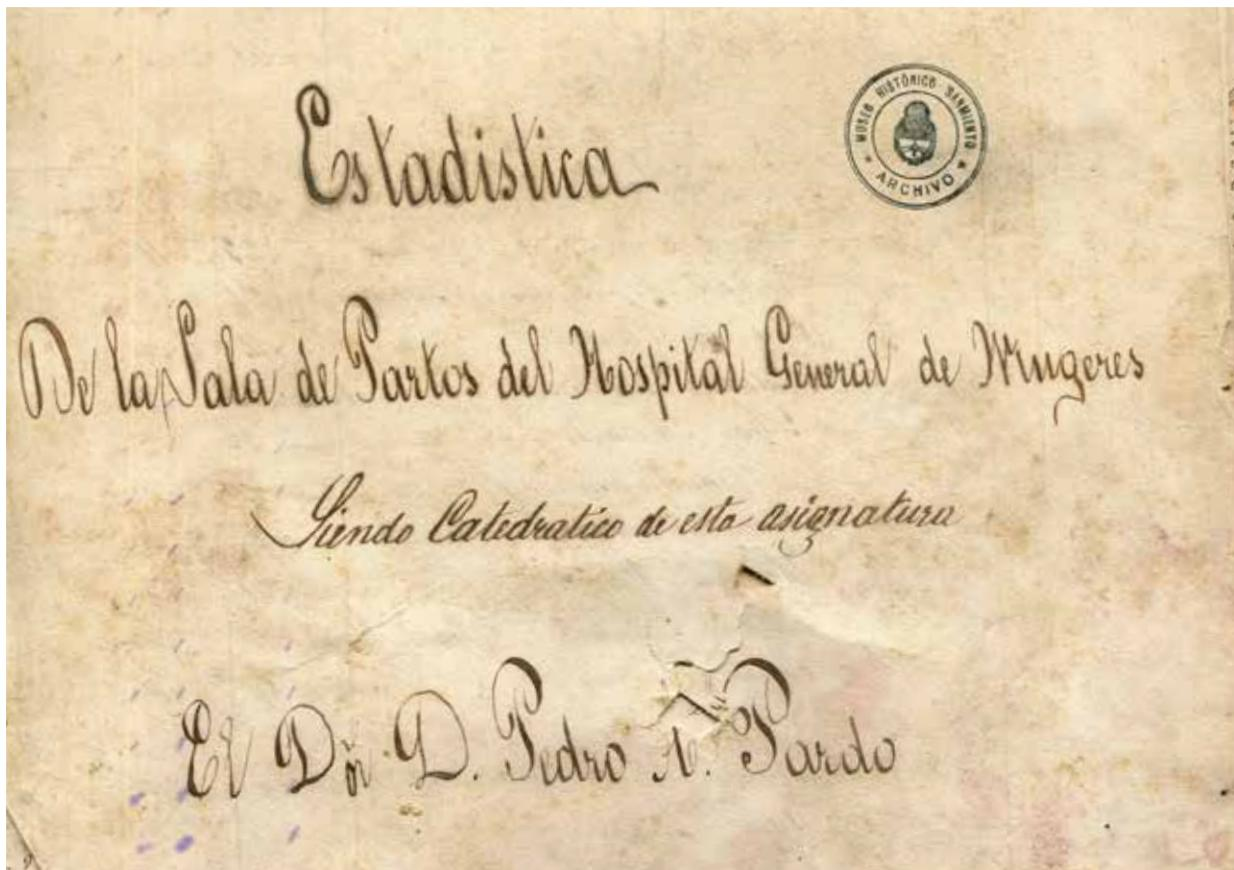 Estadistica
MUSEO HISTÓRICO SARMIENTO
* ARCHIVO *
De la Sala de Partos del Hospital General de Mugeres
Siendo Catedratico de esta asignatura
El Dor D. Pedro A. Pardo